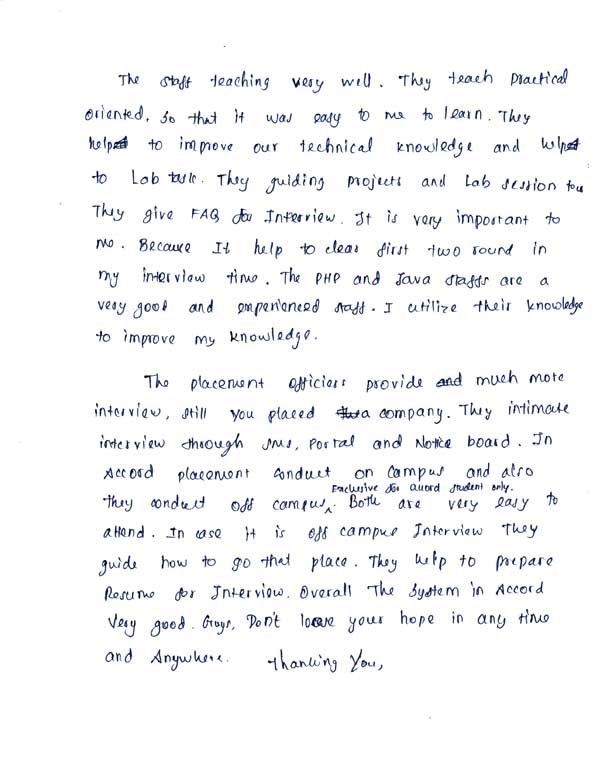 The staff teaching very well. They teach practical
oriented, so that it was easy to me to learn. They
help to improve our technical knowledge and help
to Lab task. They guiding projects and Lab session too
They give FAQ for Interview. It is very important to
me. Because It help to clear first two round in
my interview time. The PHP and Java staffs are a
very good and experienced staff. I utilize their knowledge
to improve my knowledge.
The placement officiers provide and much more
interview, still you placed a company. They intimate
interview through sms, Portal and Notice board. In
Accord placement conduct on campus and also
Exclusive for Accord student only.
they conduct off campus. Both are very easy to
attend. In case it is off campus Interview They
guide how to go that place. They help to prepare
Resume for Interview. Overall The System in Accord
Very good. Guys, Don't loove your hope in any time
and Anywhere. Thanking You,